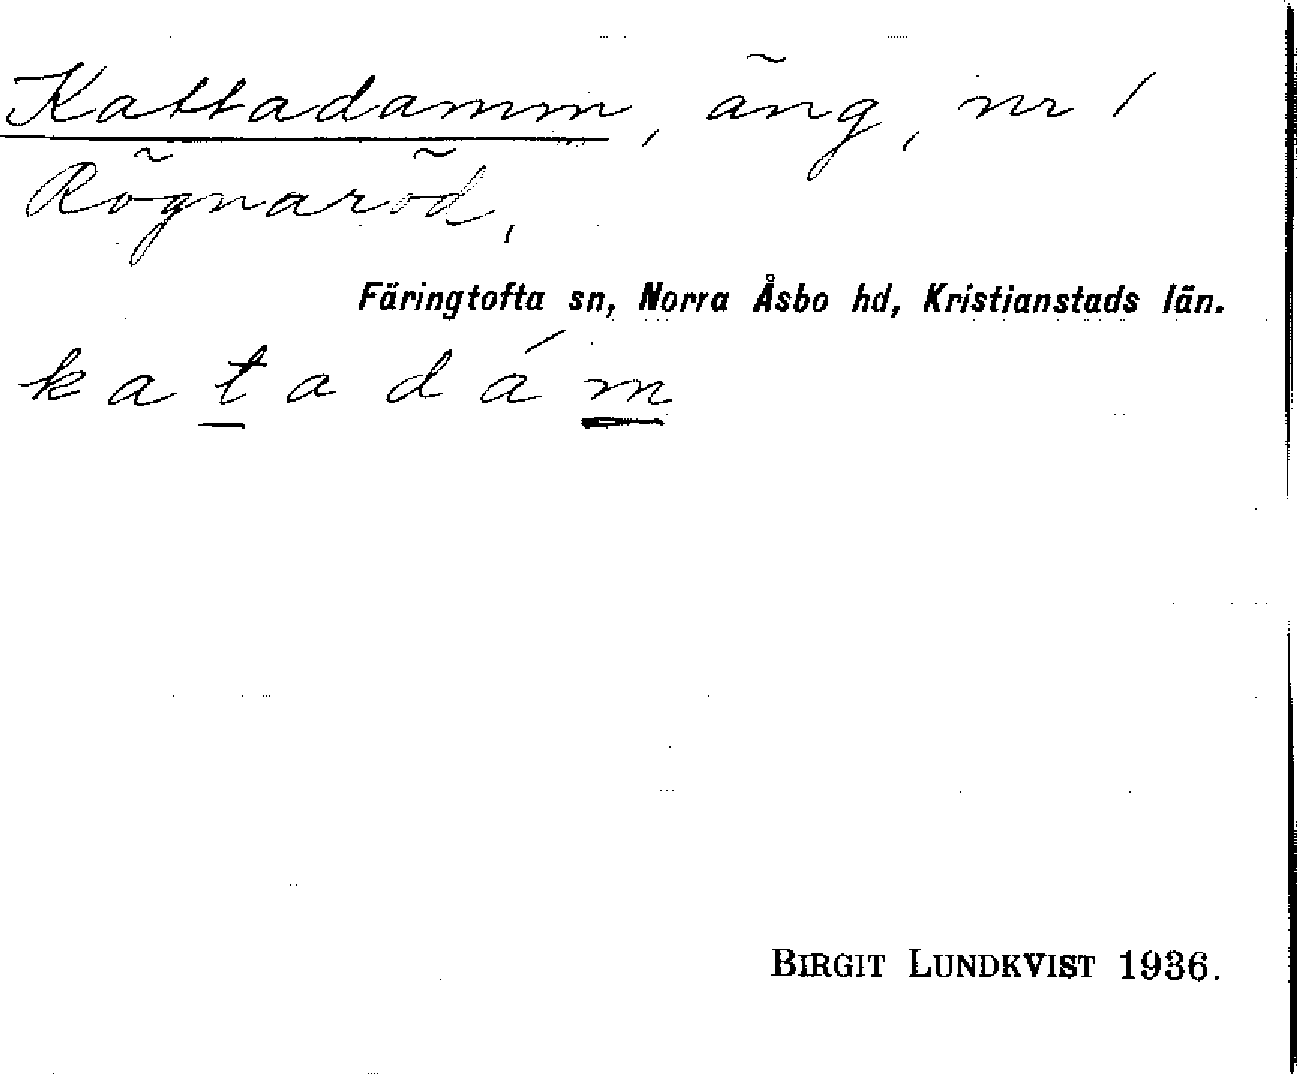 Kattadamm, äng, nr 1
Rögnaröd,
Färingtofta sn, Norra Åsbo hd, Kristianstads län.
k a t a d á m
BIRGIT LUNDKVIST 1936.